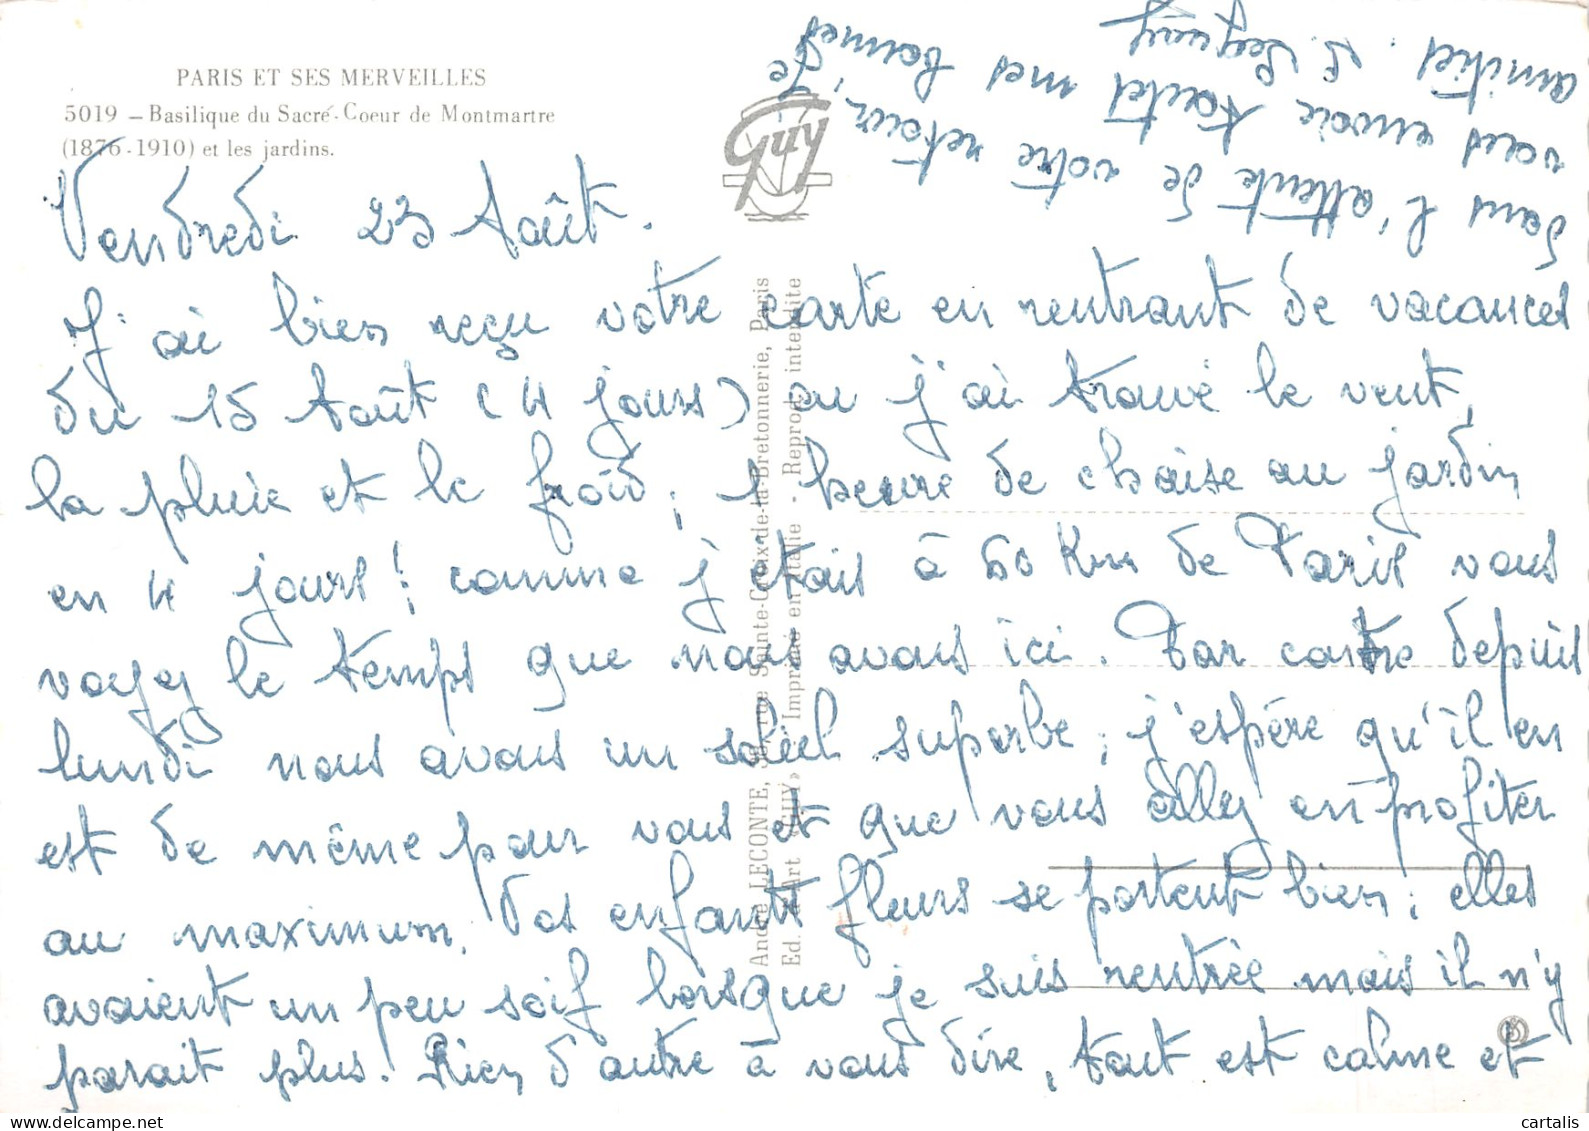 PARIS ET SES MERVEILLES
5019 – Basilique du Sacré-Coeur de Montmartre
(1876-1910) et les jardins.
Guy
André LECONTE, 38, rue Sainte-Croix-de-la-Bretonnerie, Paris
Ed. d'Art «GUY» Imprimé en Italie - Reprod. interdite
Vendredi 23 Août.
J'ai bien reçu votre carte en rentrant de vacances
du 15 Août (4 jours) ou j'ai trouvé le vent,
la pluie et le froid, 1 heure de chaise au jardin
en 4 jours! comme j'étais à 60 Km de Paris vous
voyez le temps que nous avons ici. Par contre depuis
lundi nous avons un soleil superbe, j'espère qu'il en
est de même pour vous et que vous allez en profiter
au maximum. Vos enfants fleurs se portent bien; elles
avaient un peu soif lorsque je suis rentrée mais il n'y
parait plus. Rien d'autre à vous dire, tout est calme et
dans l'attente de votre retour, Je
vous envoie toutes mes bonnes
amitiés. S.
cartalis